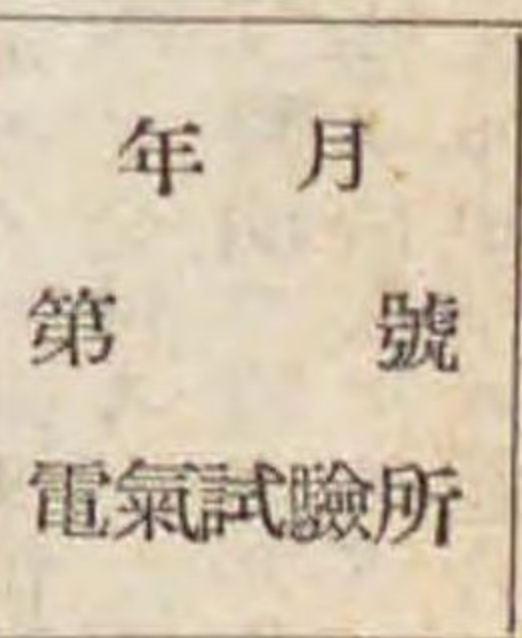 年 月
第 號
電氣試驗所